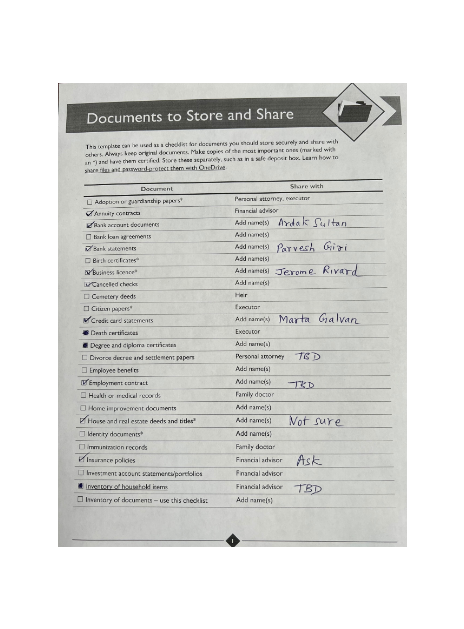 Documents to Store and Share
This template can be used as a checklist for documents you should store securely and share with
others. Always keep original documents. Make copies of the most important ones (marked with
an *) and have them certified. Store these separately, such as in a safe deposit box. Learn how to
share files and password-protect them with OneDrive.
Document Share with
☐ Adoption or guardianship papers* Personal attorney, executor
☑ Annuity contracts Financial advisor
☑ Bank account documents Add name(s) Ardak Sultan
☐ Bank loan agreements Add name(s)
☑ Bank statements Add name(s) Parvesh Giri
☐ Birth certificates* Add name(s)
☑ Business licence* Add name(s) Jerome Rivard
☑ Cancelled checks Add name(s)
☐ Cemetery deeds Heir
☐ Citizen papers* Executor
☑ Credit card statements Add name(s) Marta Galvan
■ Death certificates Executor
■ Degree and diploma certificates Add name(s)
☐ Divorce decree and settlement papers Personal attorney TBD
☐ Employee benefits Add name(s)
☑ Employment contract Add name(s) TBD
☐ Health or medical records Family doctor
☐ Home improvement documents Add name(s)
☑ House and real estate deeds and titles* Add name(s) Not sure
☐ Identity documents* Add name(s)
☐ Immunization records Family doctor
☑ Insurance policies Financial advisor Ask
☐ Investment account statements/portfolios Financial advisor
■ Inventory of household items Financial advisor TBD
☐ Inventory of documents – use this checklist Add name(s)
1